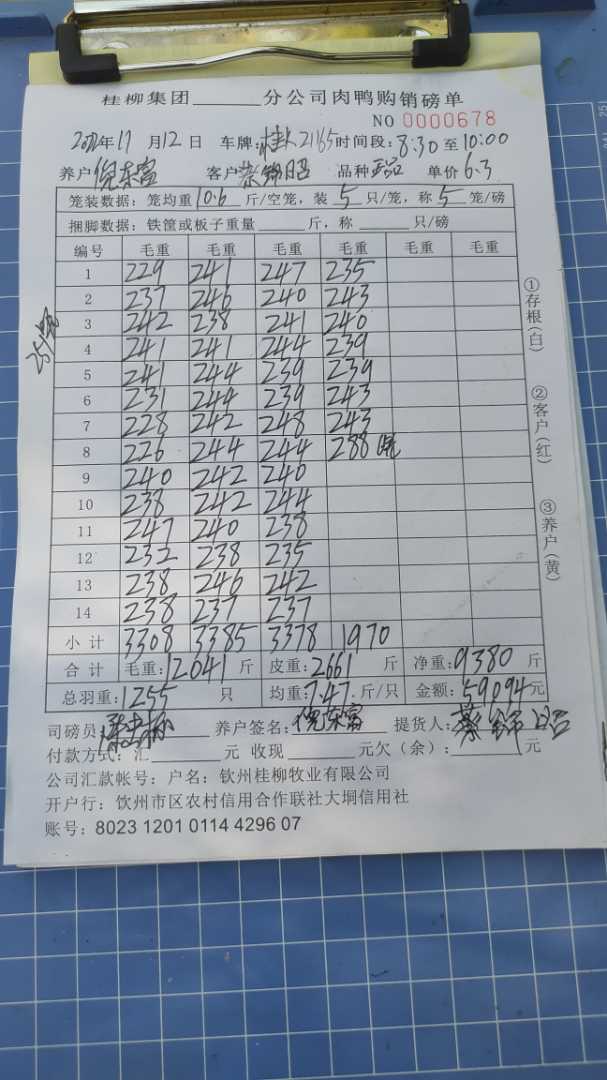 桂柳集团______分公司肉鸭购销磅单
NO 0000678
月12日 车牌:桂 21165 时间段:8:30至10:00
养户倪东富 客户蔡锦昭 品种 单价6.3
笼装数据:笼均重10.6斤/空笼,装5只/笼,称5笼/磅
捆脚数据:铁筐或板子重量______斤,称______只/磅
编号 毛重 毛重 毛重 毛重 毛重 毛重
1 229 241 247 235
2 237 246 240 243
3 242 238 241 240
4 241 241 244 239
5 241 244 239 239
6 231 244 239 243
7 228 242 248 243
8 226 244 244 288
9 240 242 240
10 238 242 244
11 247 240 238
12 232 238 235
13 238 246 242
14 238 237 237
小计 3308 3385 3378 1970
合计 毛重:12041斤 皮重:2661斤 净重:9380斤
总羽重:1255只 均重:7.47斤/只 金额:59094元
251笼
①存根(白)
②客户(红)
③养户(黄)
司磅员: 养户签名:倪东富 提货人:蔡锦昭
付款方式:汇______元 收现______元欠(余):______元
公司汇款帐号:户名:钦州桂柳牧业有限公司
开户行:钦州市区农村信用合作联社大垌信用社
账号:8023 1201 0114 4296 07